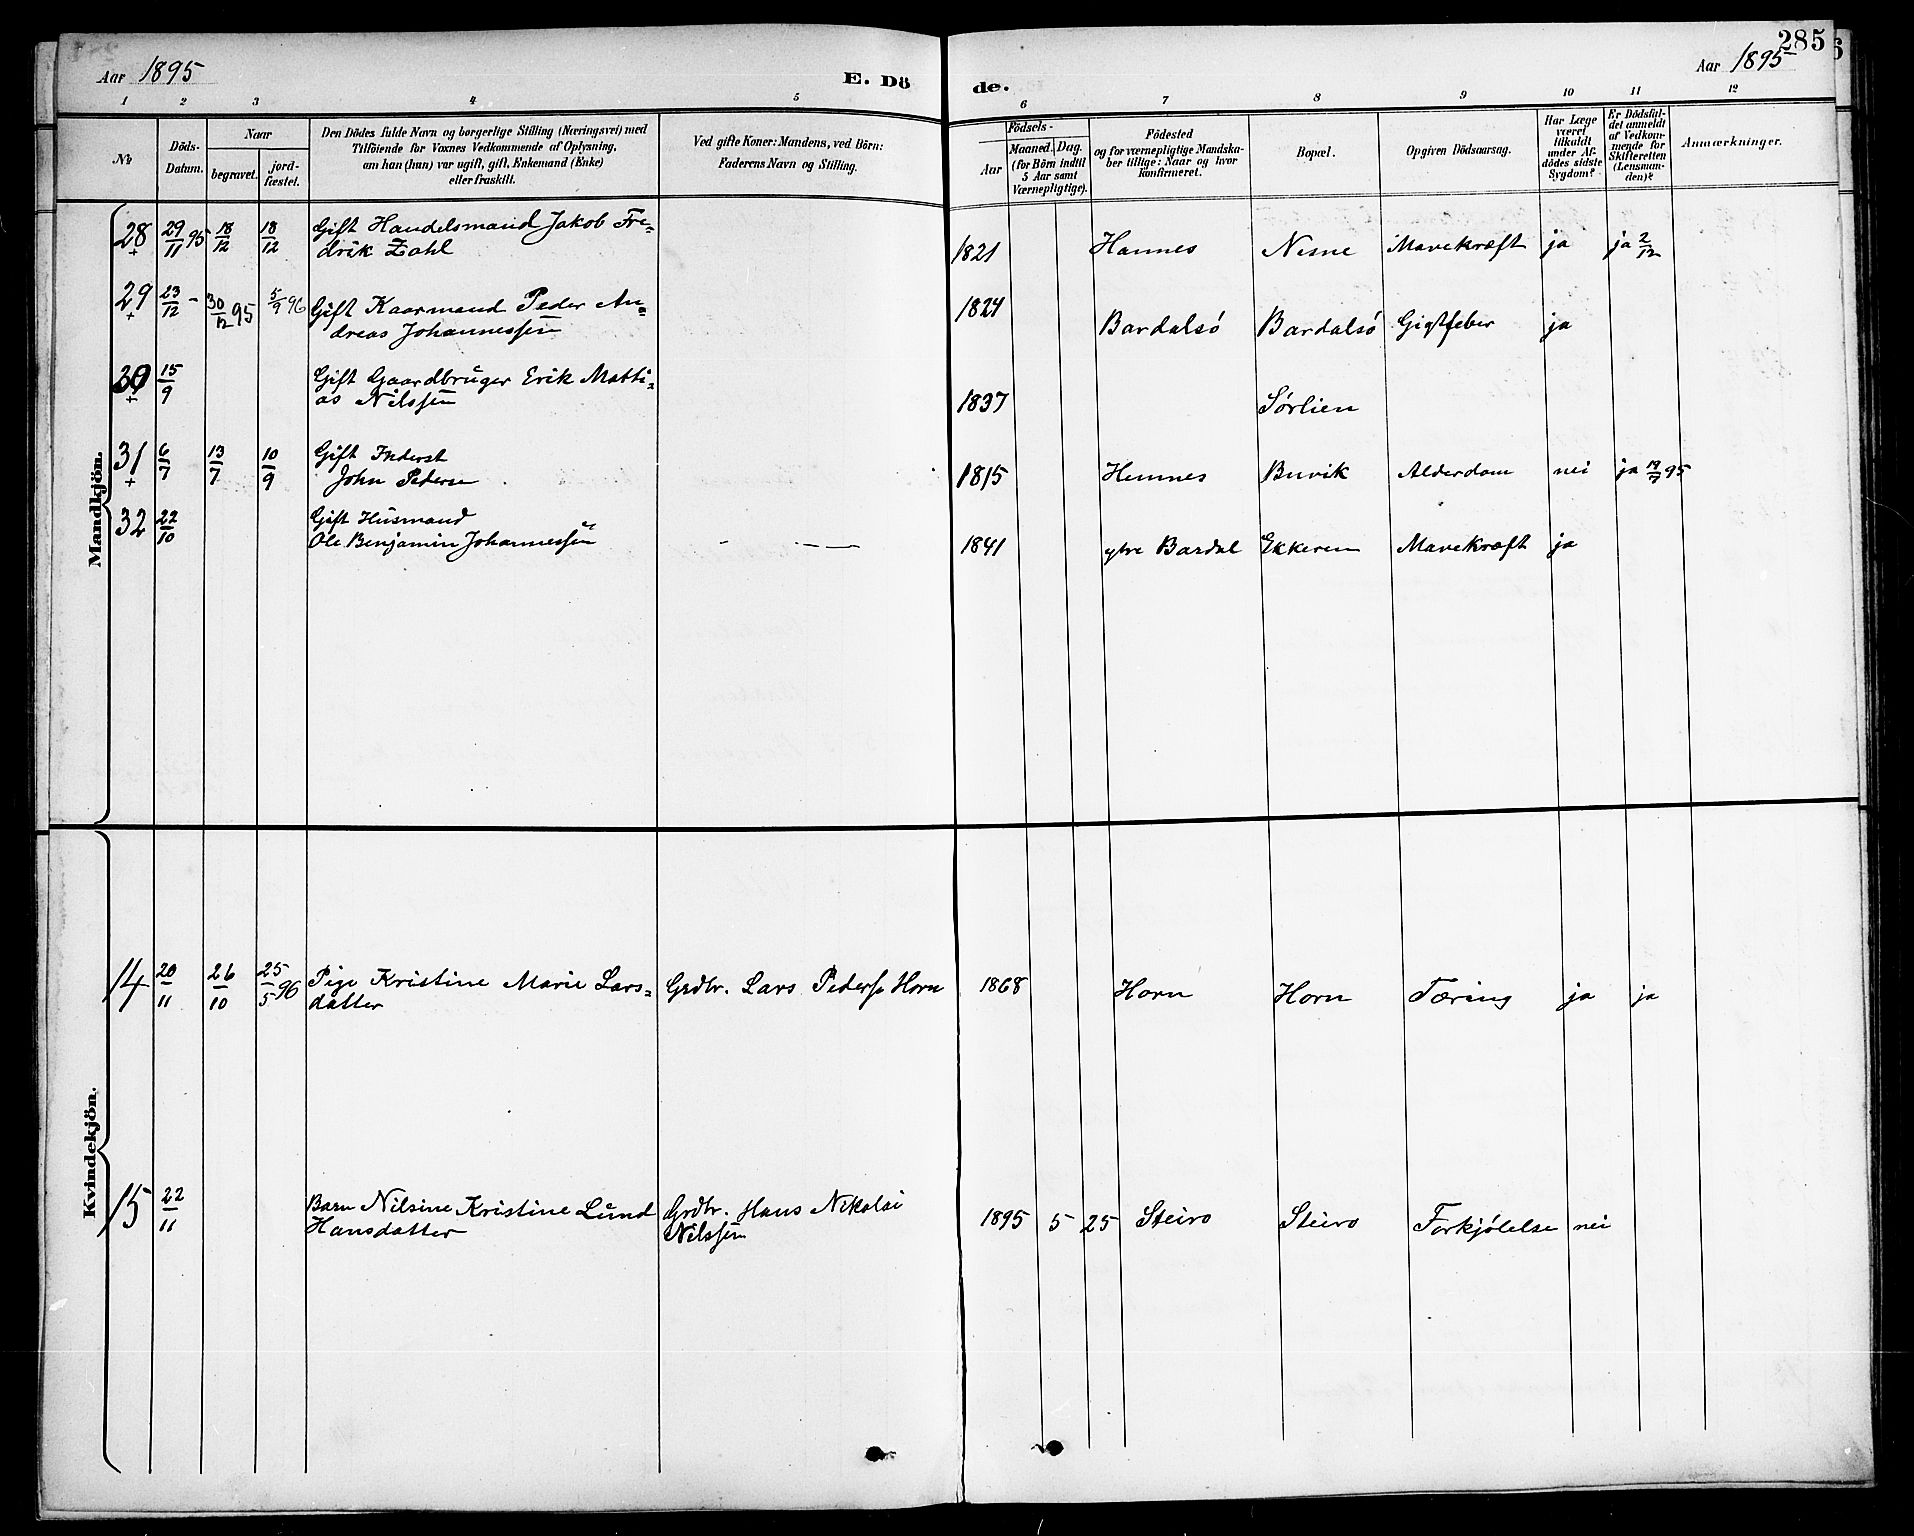 285
Aar 1895
E. Dö
de.
Aar 1895
1 2 3 4 5 6 7 8 9 10 11 12
No
Döds-
Datum.
Naar
begravet.
jord-
fæstet.
Den Dödes fulde Navn og borgerlige Stilling (Næringsvei) med
Tilföiende for Voxnes Vedkommende af Oplysning,
om han (hun) var ugift, gift, Enkemand (Enke)
eller fraskilt.
Ved gifte Koner: Mandens, ved Börn:
Faderens Navn og Stilling.
Födsels-
Aar
Maaned. Dag.
(for Börn indtil
5 Aar samt
Værnepligtige).
Födested
og for værnepligtige Mandska-
ber tillige: Naar og hvor
konfirmeret.
Bopæl.
Opgiven Dödsaarsag.
Har Læge
været
tilkaldt
under Af-
dödes sidste
Sygdom?
Er Dödsfal-
det anmeldt
af Vedkom-
mende for
Skifteretten
(Lensman-
den)?
Anmærkninger.
Mandkjön.
28 + 29/11 95 18/12 18/12 Gift Handelsmand Jakob Fre-
drik Zahl 1821 Hannes Nesne Mavekræft ja ja 2/12
29 + 23/12 - 30/12 95 5/9 96 Gift Kaarmand Peder An-
dreas Johannessen 1824 Bardalsö Bardalsö Gigtfeber ja
30 + 15/9 Gift Gaardbruger Erik Matti-
as Nilssen 1837 Sørlien
31 + 6/7 13/7 10/9 Gift Inderst
John Pedersen 1815 Hemnes Buvik Alderdom nei ja 19/7 95
32 22/10 Gift Husmand
Ole Benjamin Johannessen - — 1841 ytre Bardal Ekkeren Mavekræft ja
Kvindekjön.
14 20/11 26/10 25/5 96 Pige Kristine Marie Lars- Grdbr. Lars Peders Horn 1868 Horn Horn Tæring ja ja
datter
15 22/11 Barn Nilsine Kristine Lund Grdbr. Hans Nikolai 1895 5 25 Steiro Steiro Forkjölelse nei
Hansdatter Nilssen